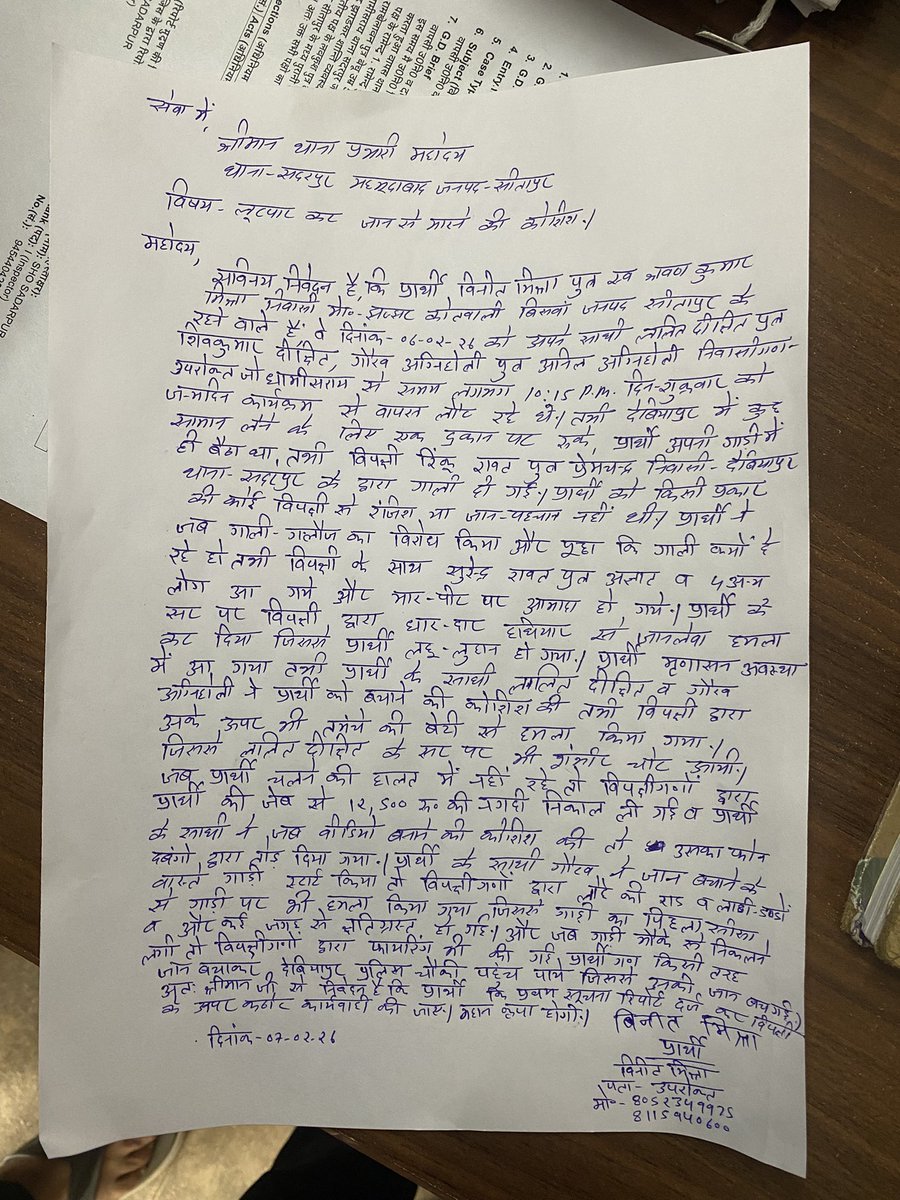 सेवा में,
श्रीमान थाना प्रभारी महोदय
थाना-सदरपुर महमूदाबाद जनपद-सीतापुर
विषय- लूटपाट कर जान से मारने की कोशिश।
महोदय,
सविनय निवेदन है, कि प्रार्थी विनीत मिश्रा पुत्र स्व श्रवण कुमार
मिश्रा निवासी मो०- झज्झर कोतवाली बिसवां जनपद सीतापुर के
रहने वाले हैं वे दिनांक- 06-02-26 को अपने साथी ललित दीक्षित पुत्र
शिवकुमार दीक्षित, गौरव अग्निहोत्री पुत्र अनिल अग्निहोत्री निवासीगण-
उपरोक्त जो से समय लगभग 10:15 P.M. दिन-शुक्रवार को
जन्मदिन कार्यक्रम से वापस लौट रहे थे। तभी देवियापुर में कुछ
सामान लेने के लिए एक दुकान पर रुके, प्रार्थी अपनी गाडी में
ही बैठा था, तभी विपक्षी रिंकू रावत पुत्र प्रेमचन्द्र निवासी- देवियापुर
थाना-सदरपुर के द्वारा गाली दी गई। प्रार्थी को किसी प्रकार
की कोई विपक्षी से रंजिश या जान-पहचान नहीं थी। प्रार्थी ने
जब गाली-गलौज का विरोध किया और पूछा कि गाली क्यों दे
रहे हो तभी विपक्षी के साथ सुरेन्द्र रावत पुत्र अज्ञात व 5 अन्य
लोग आ गये और मार-पीट पर आमादा हो गये। प्रार्थी के
सर पर विपक्षी द्वारा धार-दार हथियार से जानलेवा हमला
कर दिया जिससे प्रार्थी लहू-लुहान हो गया। प्रार्थी मृणासन अवस्था
में आ गया तभी प्रार्थी के साथी ललित दीक्षित व गौरव
अग्निहोत्री ने प्रार्थी को बचाने की कोशिश की तभी विपक्षी द्वारा
उनके ऊपर भी तमंचे की बेटी से हमला किया गया।
जिससे ललित दीक्षित के सर पर भी गंभीर चोट आयी।
जब प्रार्थी चलने की हालत में नहीं रहे तो विपक्षीगणों द्वारा
प्रार्थी की जेब से 12,500 रु० की नगदी निकाल ली गई व प्रार्थी
के साथी ने जब वीडियो बनाने की कोशिश की तो उसका फोन
दबंगो द्वारा तोड़ दिया गया। प्रार्थी के साथी गौरव ने जान बचाने के
वास्ते गाडी स्टार्ट किया तो विपक्षीगणों द्वारा लोहे की राड व लाठी-डण्डों
से गाडी पर भी हमला किया गया जिससे गाडी का पिछला शीशा
व और कई जगह से क्षतिग्रस्त हो गई। और जब गाडी मौके से निकलने
लगी तो विपक्षीगणों द्वारा फायरिंग भी की गई। प्रार्थीगण किसी तरह
जान बचाकर देवियापुर पुलिस चौकी पहुंच पाये जिससे उनकी जान बच गई।
अतः श्रीमान जी से निवेदन है कि प्रार्थी कि प्रथम सूचना रिपोर्ट दर्ज कर विपक्षी
के ऊपर कठोर कार्यवाही की जाए। महान कृपा होगी।
दिनांक-07-02-26
विनीत मिश्रा
प्रार्थी
विनीत मिश्रा
पता- उपरोक्त
मो०-8052349975
8115940600